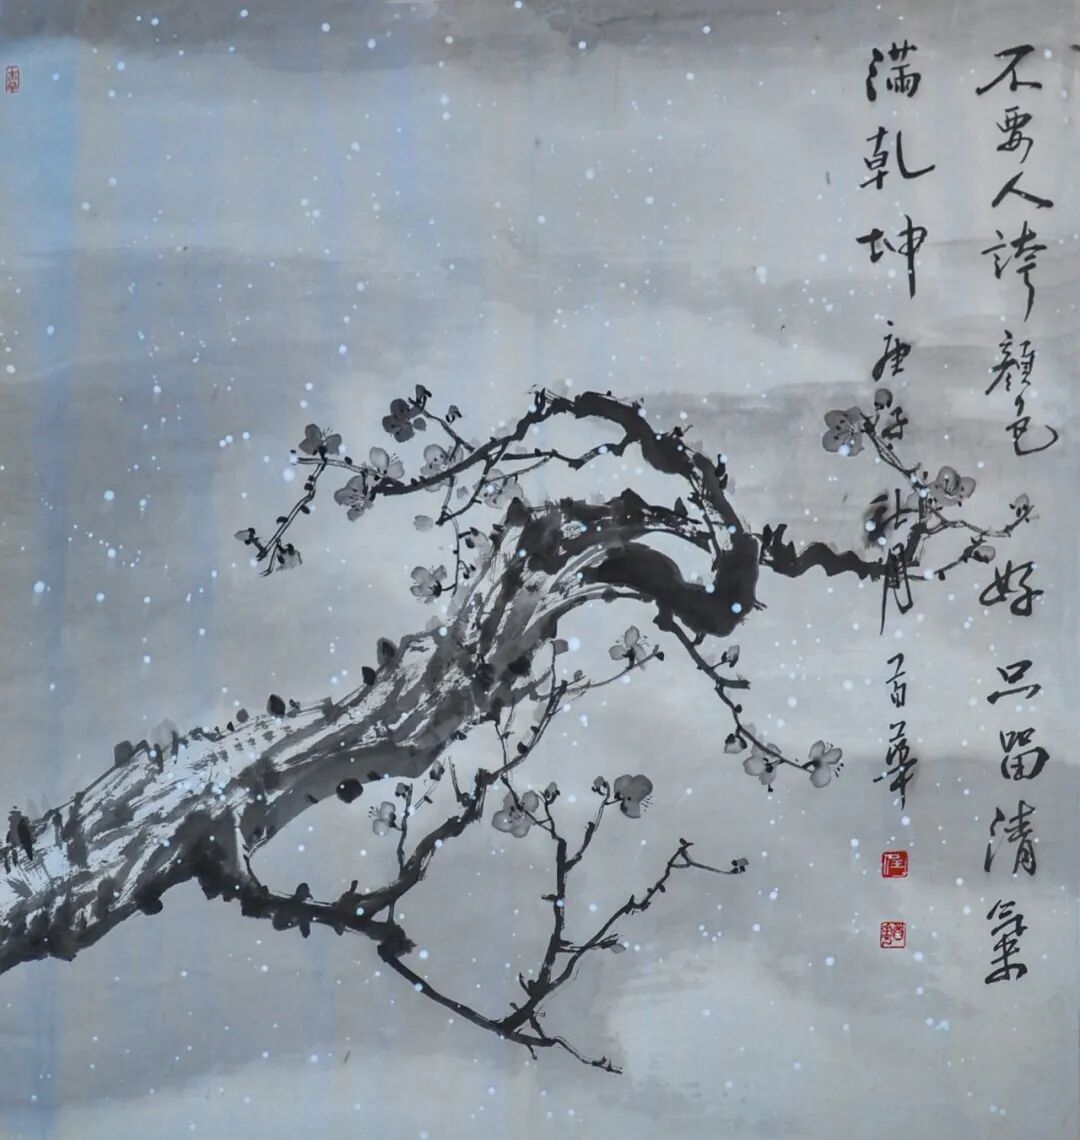 不要人誇顏色好只留清氣
滿乾坤 庚 月 百華